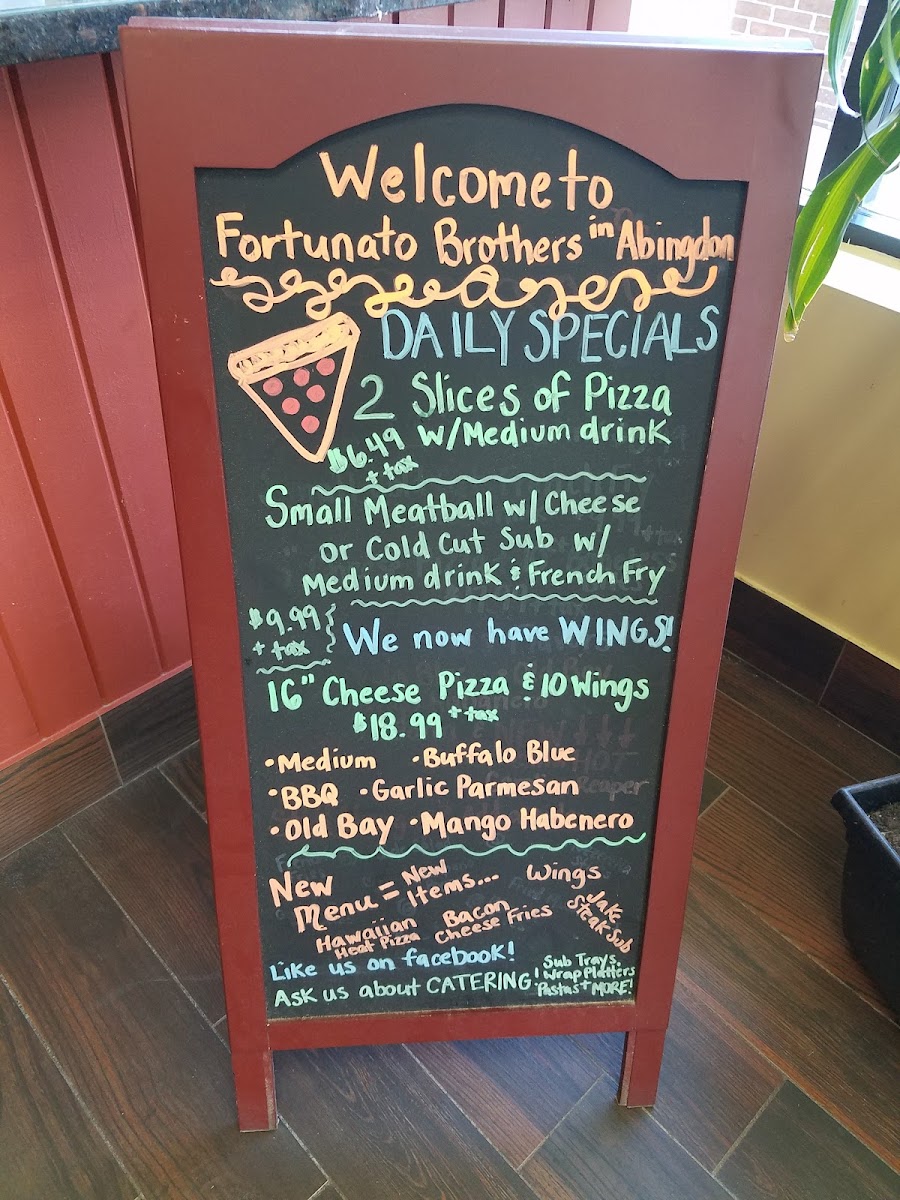 Welcome to
Fortunato Brothers in Abingdon
DAILY SPECIALS
2 Slices of Pizza
w/Medium drink
$6.49
+ tax
Small Meatball w/ Cheese
or Cold Cut Sub w/
Medium drink & French Fry
$9.99
+ tax
We now have WINGS!
16" Cheese Pizza & 10 Wings
$18.99 + tax
• Medium • Buffalo Blue
• BBQ • Garlic Parmesan
• Old Bay • Mango Habenero
New
Menu = New
Items...
Wings
Hawaiian
Heat Pizza
Bacon
Cheese Fries
Jake
Steak Sub
Like us on facebook!
Ask us about CATERING!
Sub Trays,
Wrap Platters
Pastas + MORE!